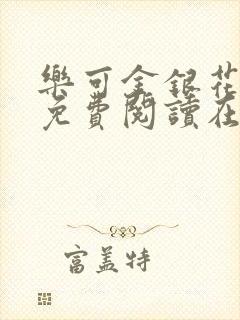 樂可金銀花
免費閱讀在
富蓋特